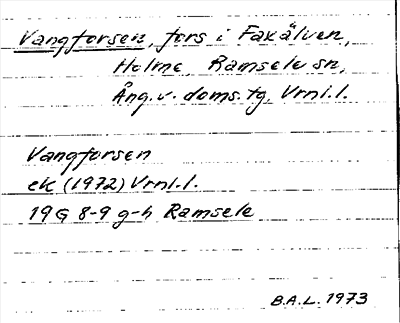 Vangforsen, fors i Faxälven,
Holme, Ramsele sn,
Ång.v. doms.tg, Vrnl.l.
Vangforsen
ek (1972) Vrnl.l.
19G 8-9 g-h Ramsele
B.A.L. 1973